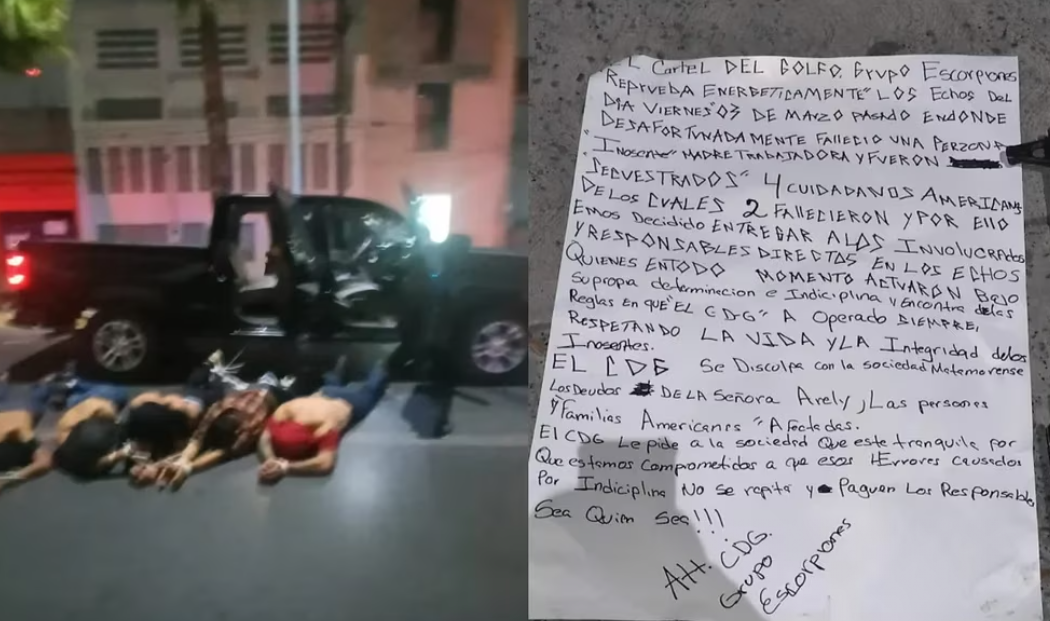 L Cartel DEL GOLFO. Grupo Escorpiones
REPRUEBA ENERGETICAMENTE" LOS Echos DEL
DIA VIERNES "03 DE MARZO PASADO ENDONDE
DESAFORTUNADAMENTE FALLECIO UNA PERZONA
"INosente" MADRE TRABAJADORA Y FUERON
SECUESTRADOS" 4 CUIDADANOS AMERICANS
DE LOS CUALES 2 FALLECIERON Y POR Ello
Emos Decidido ENTREGAR A LOS INVOLUCRADOS
Y RESPONSABLES DIRECTOS EN LOS ECHOS
QUIENES ENTODO MOMENTO ACTUARON BAJO
su propa determinacion e Indiciplina y Encontra delas
Reglas En que "EL CDG" A Operado SIEMPRE,
RESPETANDO LA VIDA Y LA Integridad delos
Inosentes.
EL CDG Se Disculpa con la sociedad Matamorense
Los Deudos DE LA Señora Arely, Las personas
y Familias Americanes "Afectadas.
El CDG Le pide a la sociedad Que este tranquila por
Que estamos comprometidos a que esos Errores Causados
Por Indiciplina No se repita y Paguen Los Responsables
Sea Quien Sea!!!
Att. CDG.
Grupo
Escorpiones